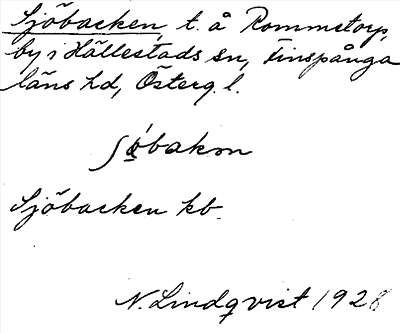 Sjöbacken, t. å Rommetorp,
by i Hällestads sn, Finspånga
läns hd, Österg. l.
Sjöbacken kb.
N. Lindqvist 1928